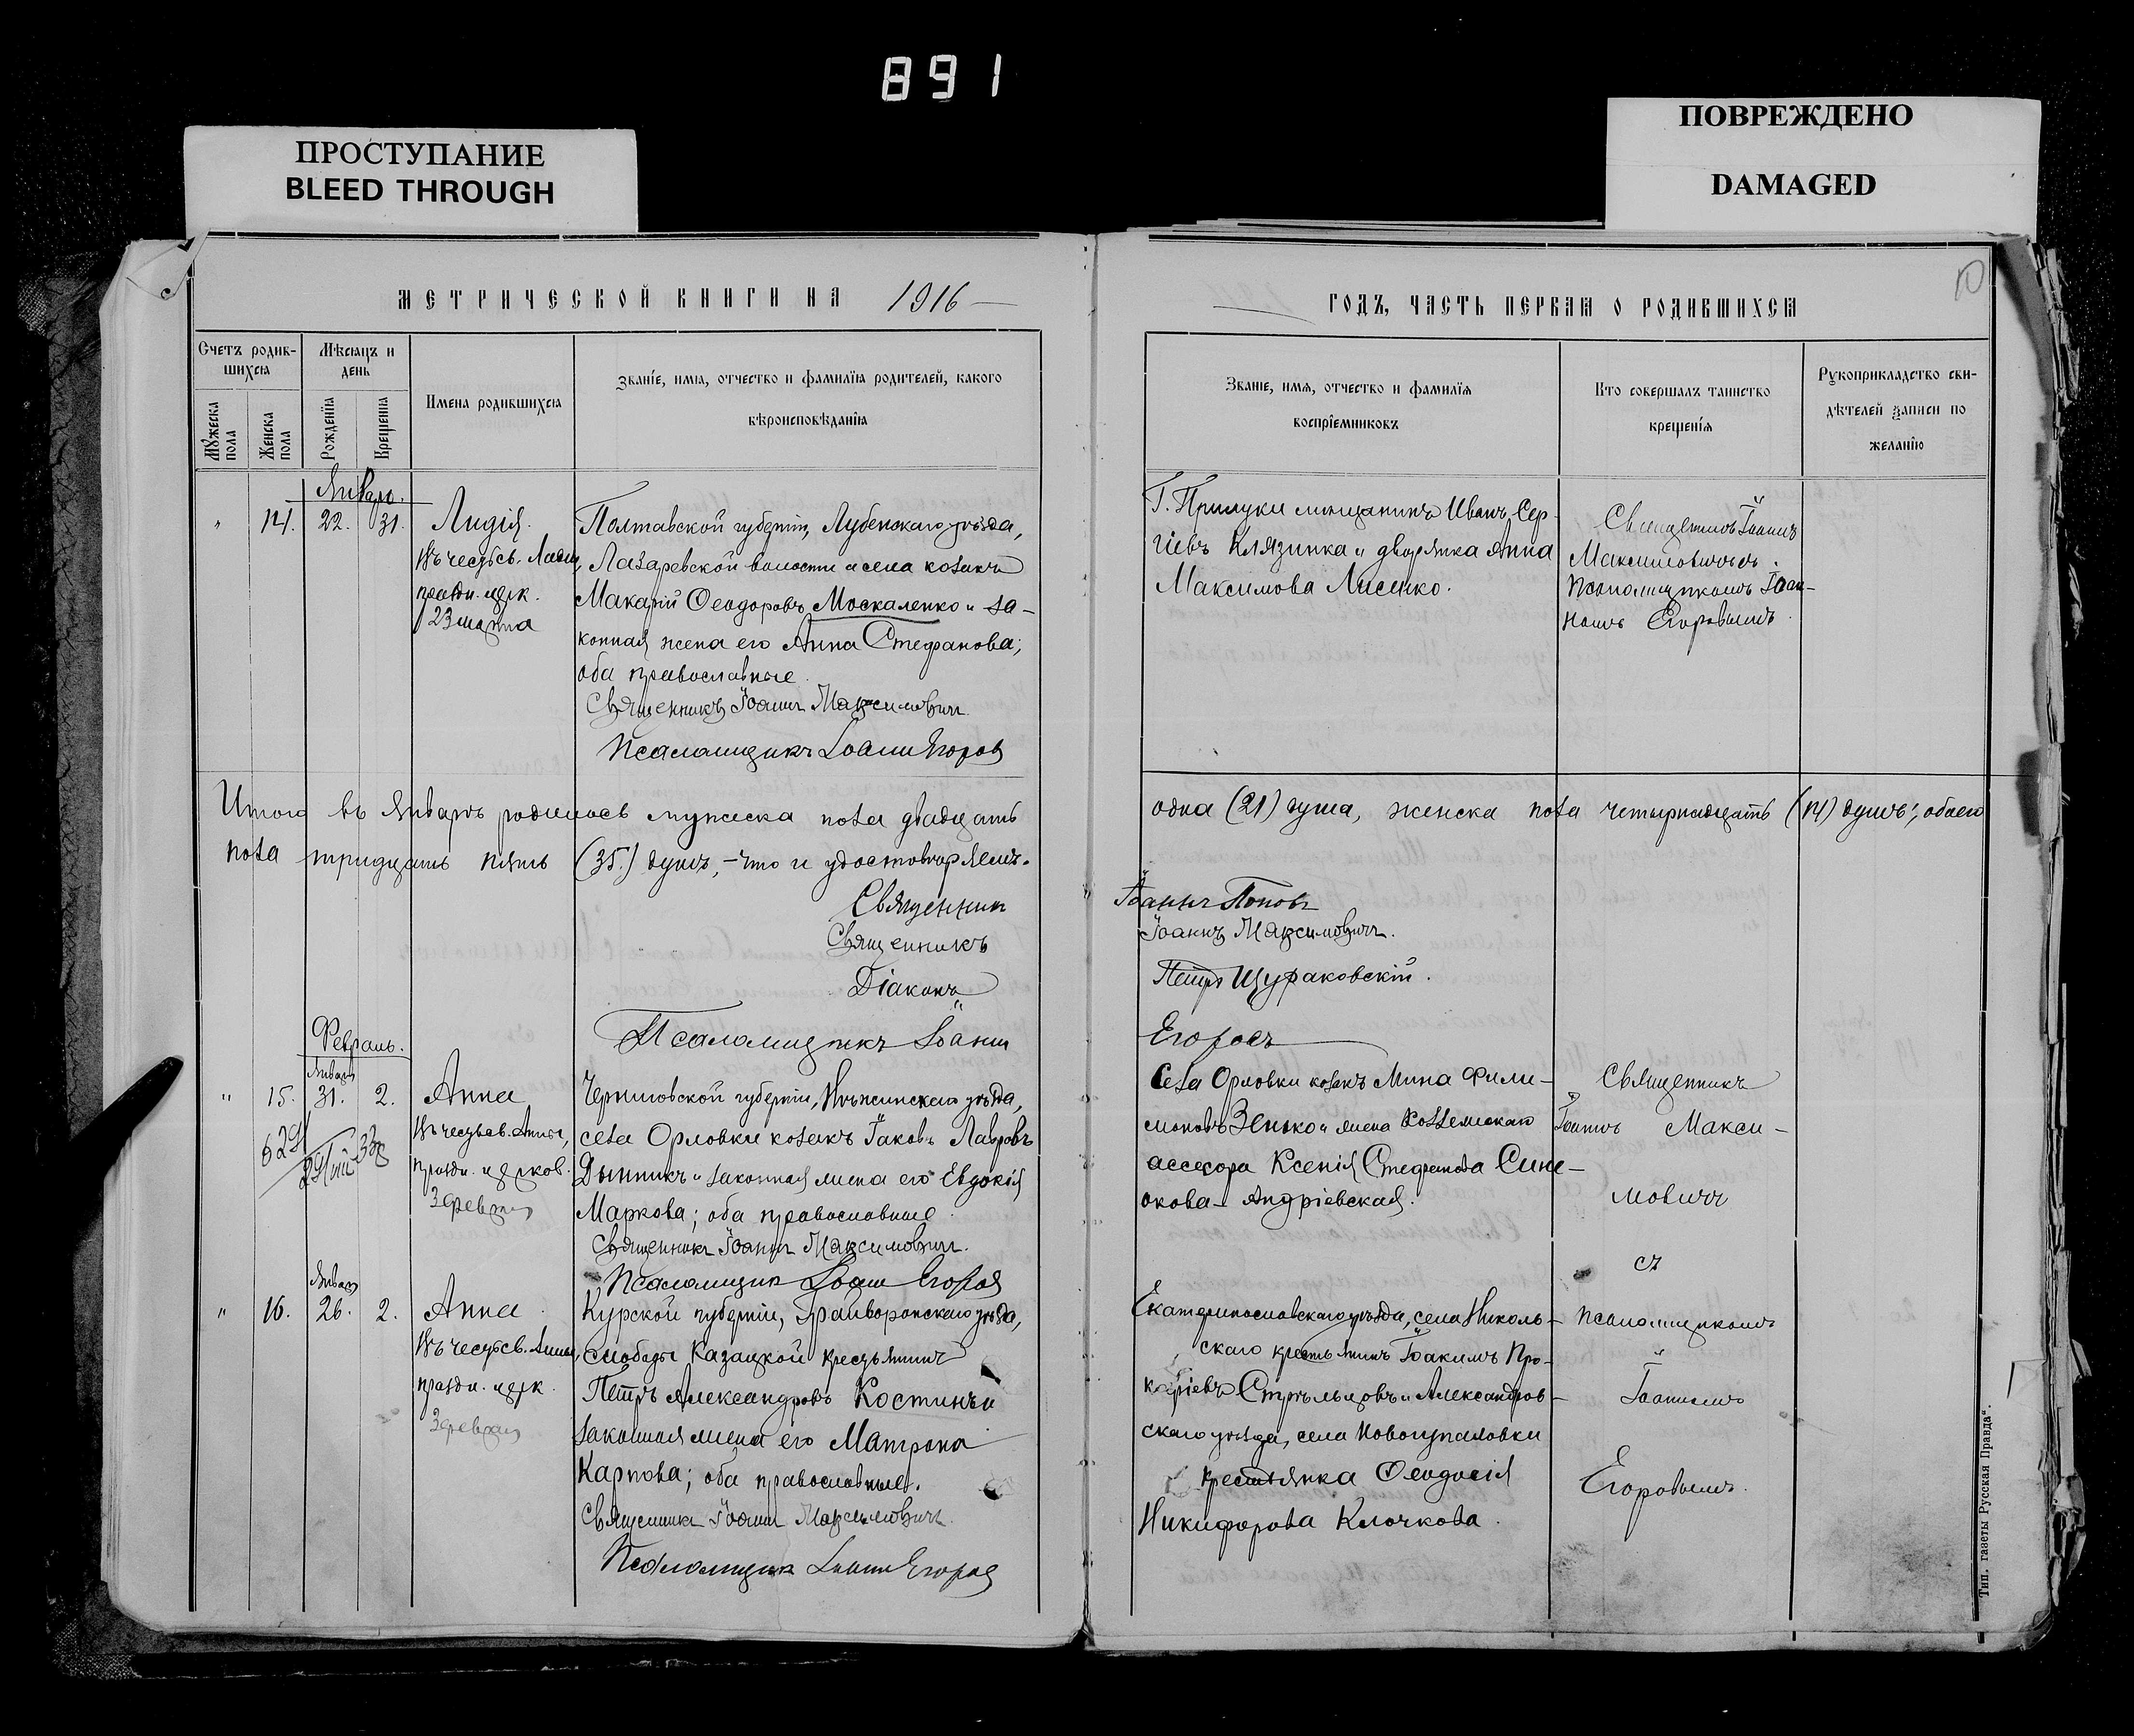 891
ПРОСТУПАНИЕ
BLEED THROUGH
ПОВРЕЖДЕНО
DAMAGED
МЕТРИЧЕСКОЙ КНИГИ НА 1916
Счетъ родив-
шихся
Мѣсяцъ и
день
Мужеска
пола
Женска
пола
Рожденія
Крещенія
Имена родившихся
Званіе, имя, отчество и фамилія родителей, какого
вѣроисповѣданія
Январь.
" 14. 22. 31. Лидія.
Въ честь св. Лидіи,
праздн. церк.
23 марта
Полтавской губерніи, Лубенскаго уѣзда,
Лазаревской волости и села козакъ
Макарій Ѳеодоровъ Москаленко и за-
конная жена его Анна Стефанова;
оба православные.
Священникъ Іоаннъ Максимовичъ
Псаломщикъ Іоаннъ Егоровъ
Итого въ Январѣ родилось мужеска пола двадцать
пола тридцать пять (35.) душъ, – что и удостовѣряемъ.
Священникъ
Священникъ
Діаконъ
Псаломщикъ Іоаннъ
Февраль.
Январь
" 15. 31. 2. Анна
Въ честь св. Анны,
праздн. церков.
3 февраля
Черниговской губерніи, Нѣжинскаго уѣзда,
села Орловки козакъ Іаковъ Лавровъ
Дынникъ и законная жена его Евдокія
Маркова; оба православные.
Священникъ Іоаннъ Максимовичъ.
Псаломщикъ Іоаннъ Егоровъ
Январь
" 16. 26. 2. Анна.
Въ честь св. Анны,
праздн. церк.
3 февраля
Курской губерніи, Грайворонскаго уѣзда,
слободы Казацкой крестьянинъ
Петръ Александровъ Костинъ и
законная жена его Матрона
Карпова; оба православные.
Священникъ Іоаннъ Максимовичъ.
Псаломщикъ Іоаннъ Егоровъ
ГОДЪ, ЧАСТЬ ПЕРВАЯ О РОДИВШИХСЯ
Званіе, имя, отчество и фамилія
воспріемниковъ
Кто совершалъ таинство
крещенія
Рукоприкладство сви-
дѣтелей записи по
желанію
Г. Прилуки мѣщанинъ Иванъ Сер-
гіевъ Клязинка и дворянка Анна
Максимова Лисенко.
Священникъ Іоаннъ
Максимовичъ съ
псаломщикомъ Іоан-
номъ Егоровымъ.
одна (21) душа, женска пола четырнадцать (14) душъ; обоего
Іоаннъ Поповъ
Іоаннъ Максимовичъ.
Петръ Щураковскій.
Егоровъ
Села Орловки козакъ Мина Фили-
моновъ Зенько и жена Коллежскаго
ассесора Ксенія Стефанова Сине-
окова-Андріевская.
Священникъ
Іоаннъ Макси-
мовичъ
съ
Екатеринославскаго уѣзда, села Николь-
скаго крестьянинъ Іоакимъ Про-
копіевъ Стрѣльцовъ и Александров-
скаго уѣзда, села Новогупаловки
крестьянка Ѳеодосія
Никифорова Клочкова.
псаломщикомъ
Іоанномъ
Егоровымъ.
Тип. газеты „Русская Правда“.